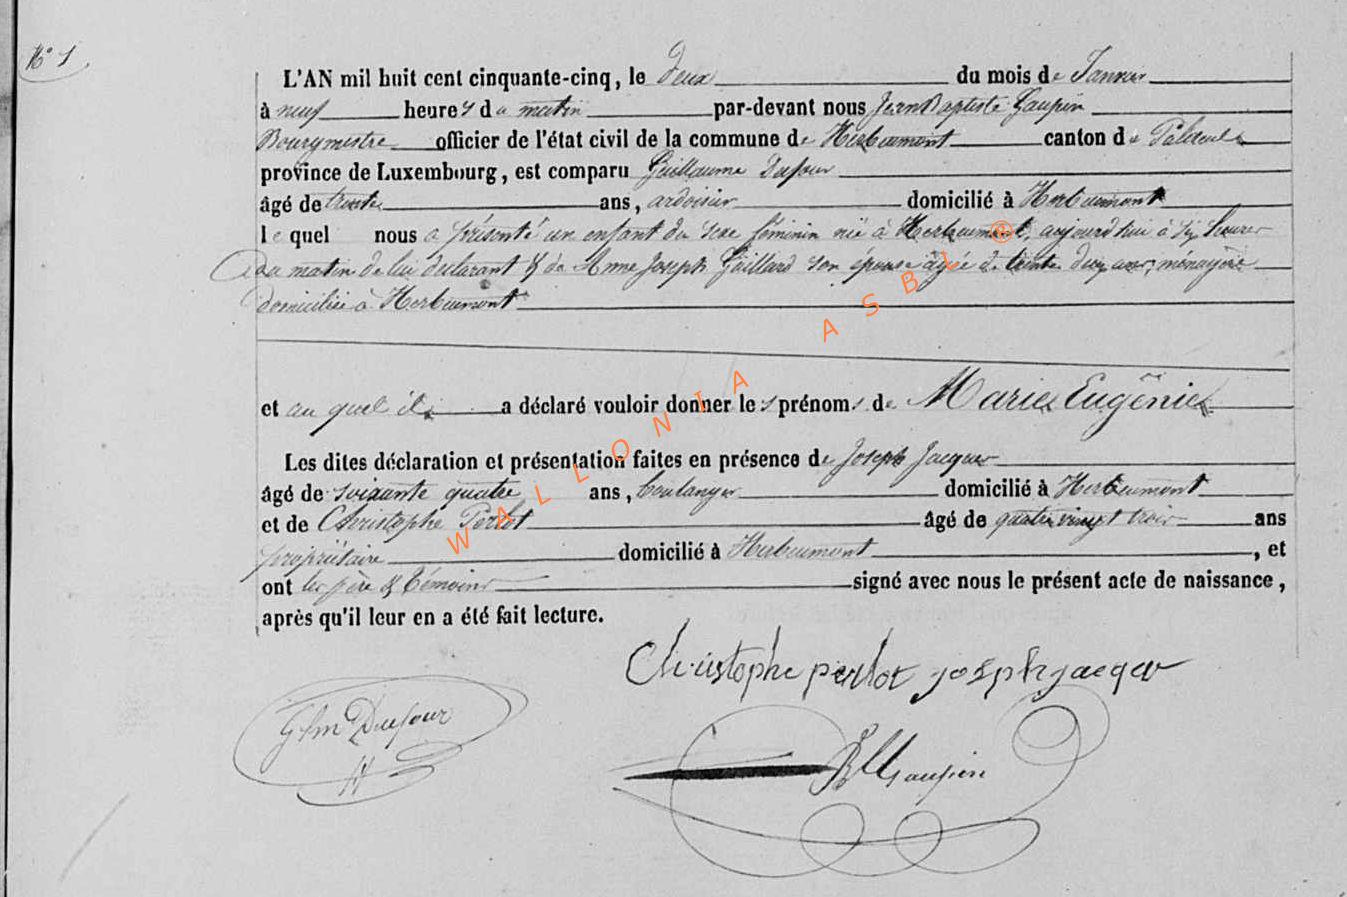 N° 1
L'AN mil huit cent cinquante-cinq, le deux du mois de Janvier
à neuf heures du matin par-devant nous Jean Baptiste Gaupin
Bourgmestre officier de l'état civil de la commune de Herbeumont canton de Paliseul
province de Luxembourg, est comparu Guillaume Dufour
âgé de trente ans, ardoisier domicilié à Herbeumont
lequel nous a présenté un enfant du sexe féminin né à Herbeumont, aujourd'hui à six heures
du matin de lui déclarant & de Anne Joseph Gaillard son épouse âgée de trente deux ans, ménagère
domiciliée à Herbeumont
et au quel il a déclaré vouloir donner les prénoms de Marie Eugènie
Les dites déclaration et présentation faites en présence de Joseph Jacques
âgé de soixante quatre ans, boulanger domicilié à Herbeumont
et de Christophe Perlot âgé de quatre vingt trois ans
propriétaire domicilié à Herbeumont, et
ont les père & témoins signé avec nous le présent acte de naissance,
après qu'il leur en a été fait lecture.
Christophe perlot joseph jacque
Glm Dufour
JB Gaupin
WALLONIA ASBL ®